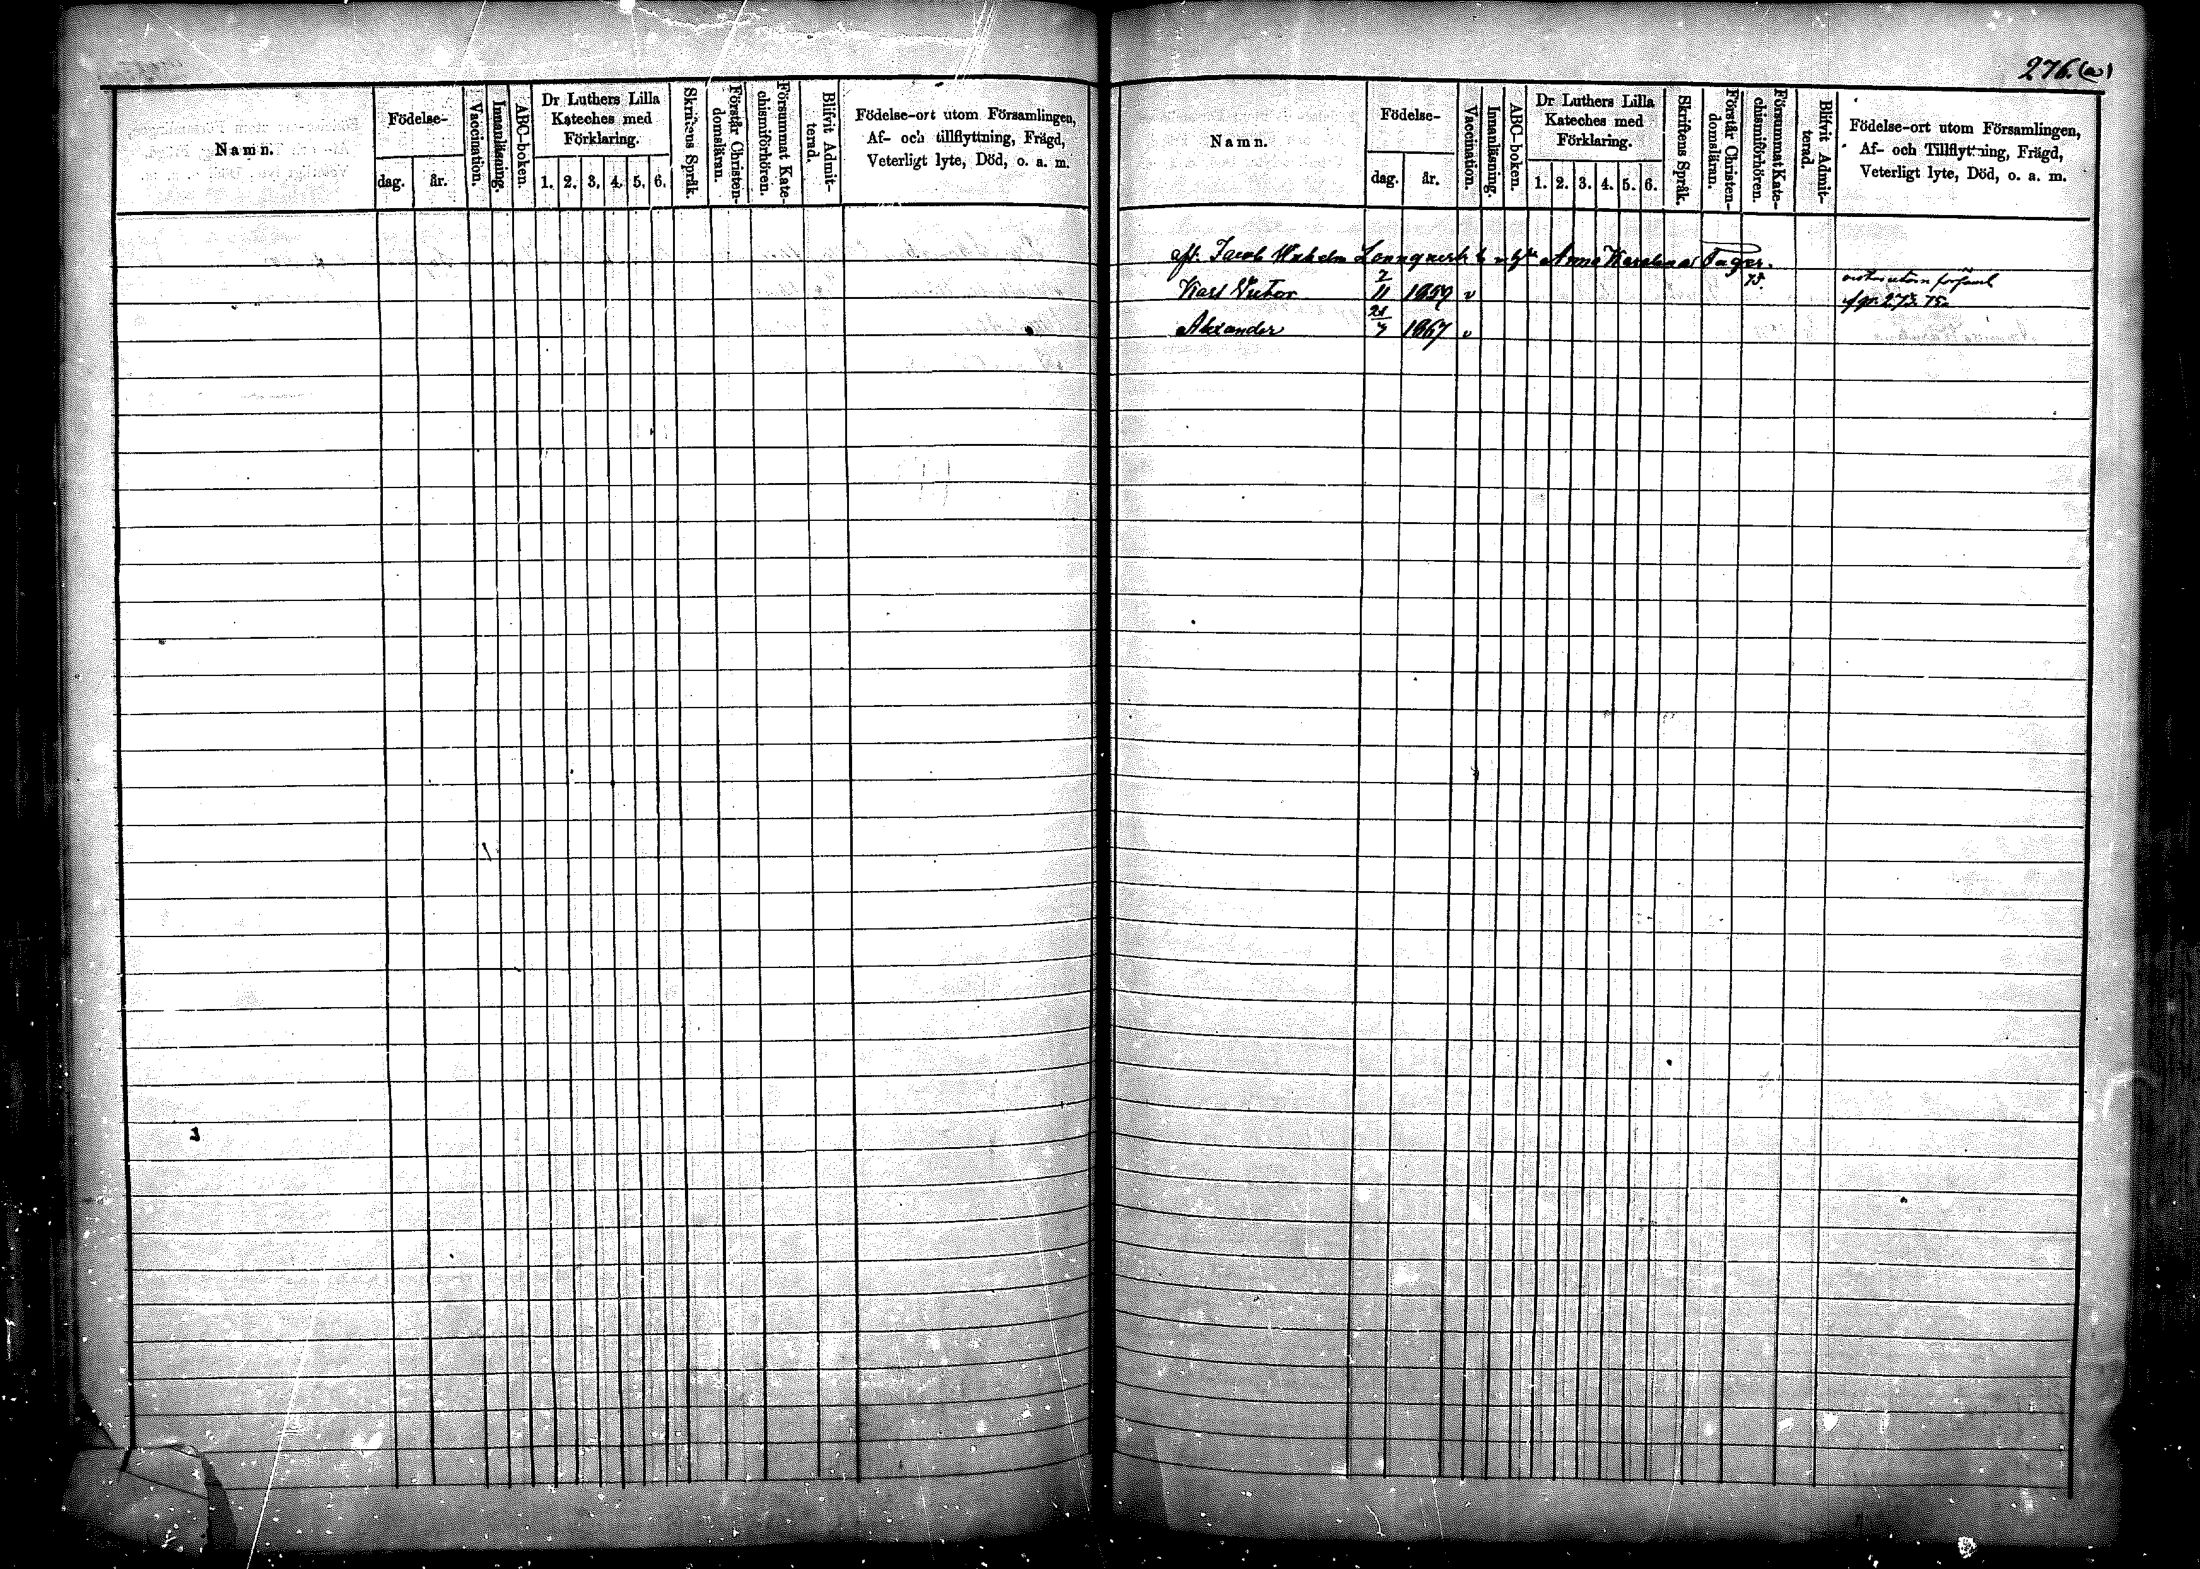 276.(a)
Namn.
Födelse-
dag.
år.
Vaccination.
Innanläsning.
ABC-boken.
Dr Luthers Lilla
Kateches med
Förklaring.
1. 2. 3. 4. 5. 6.
Skriftens Språk.
Förstår Christen-
domsläran.
Försummat Kate-
chismiförhören.
Blifvit Admit-
terad.
Födelse-ort utom Församlingen,
Af- och tillflyttning, Frägd,
Veterligt lyte, Död, o. a. m.
Namn.
Födelse-
dag.
år.
Vaccination.
Innanläsning.
ABC-boken.
Dr Luthers Lilla
Kateches med
Förklaring.
1. 2. 3. 4. 5. 6.
Skriftens Språk.
Förstår Christen-
domsläran.
Försummat Kate-
chismiförhören.
Blifvit Admit-
terad.
Födelse-ort utom Församlingen,
Af- och Tillflyttning, Frägd,
Veterligt lyte, Död, o. a. m.
Jacob Wilhelm Lönnqvist Anna Karolina Tager.
Karl Victor 2/11 1859 v 75.
Alexander 21/7 1867 v